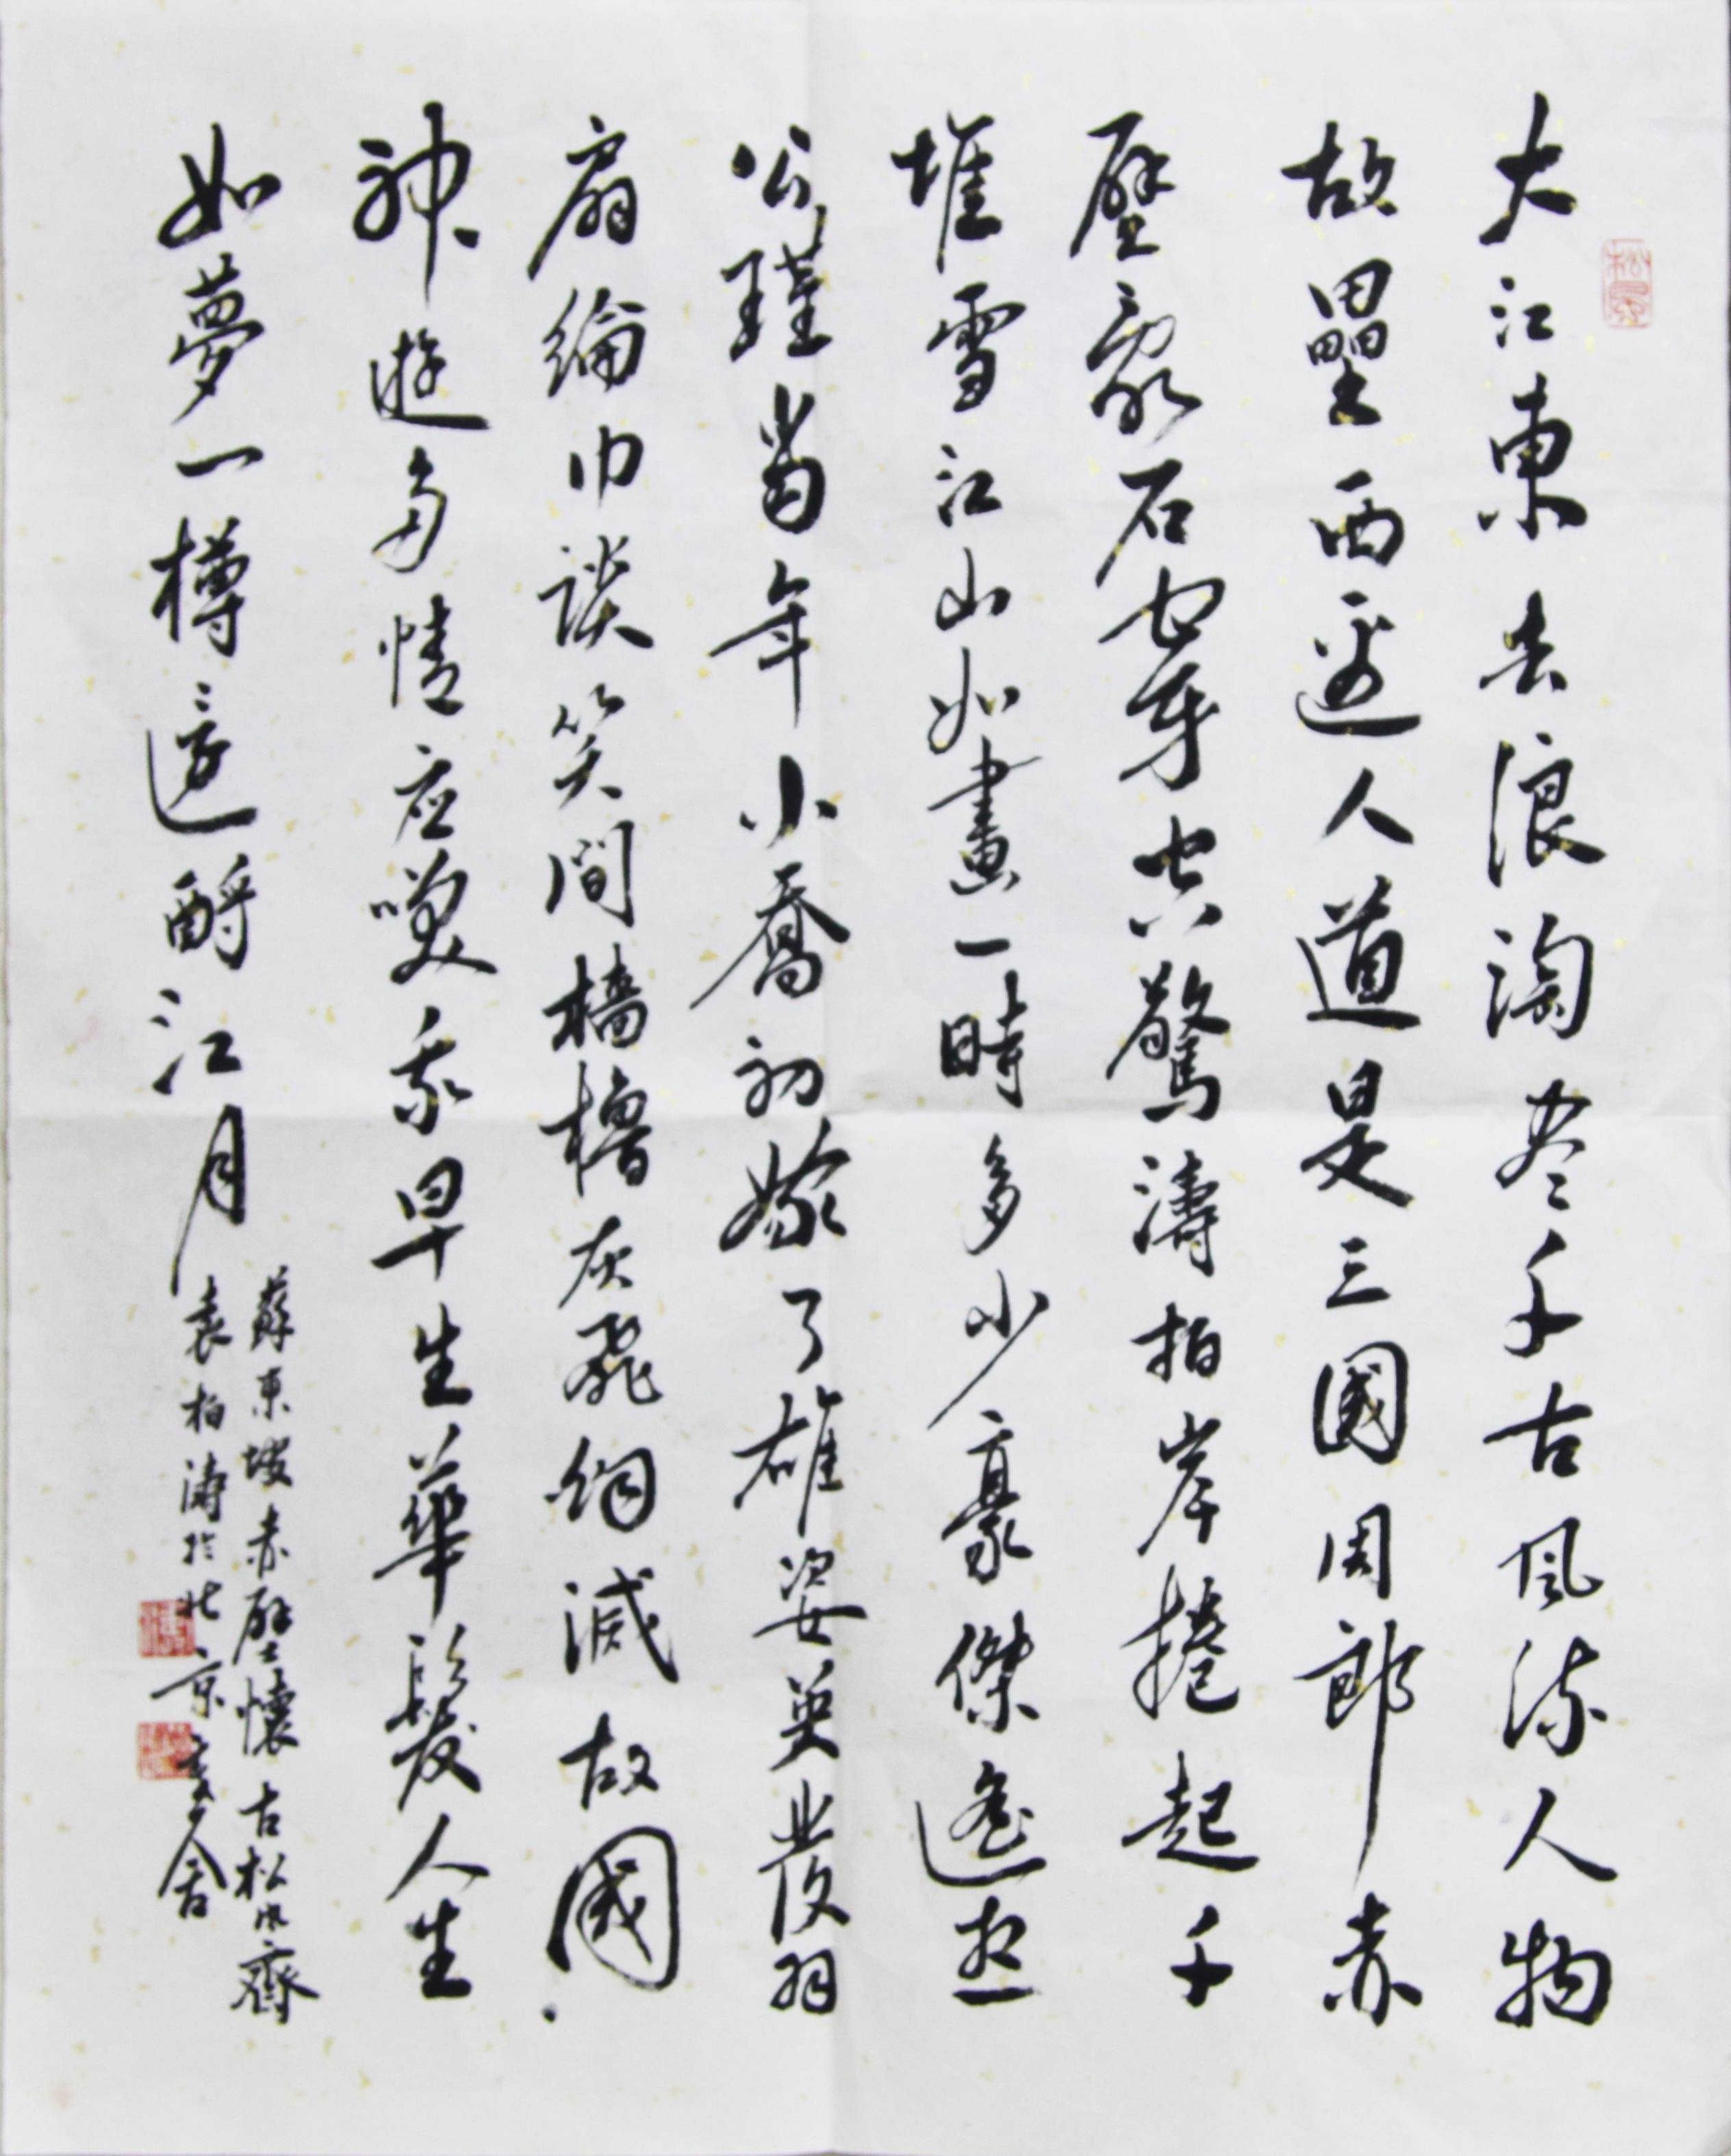 大江東去浪淘尽千古風流人物
故壘西邊人道是三國周郎赤
壁亂石穿空驚濤拍岸捲起千
堆雪江山如畫一時多少豪傑遙想
公瑾當年小喬初嫁了雄姿英發羽
扇綸巾談笑間檣櫓灰飛烟滅故國
神遊多情应笑我早生華髮人生
如夢一樽還酹江月
蘇東坡赤壁懷古松風齋
袁柏涛於北京寒舍